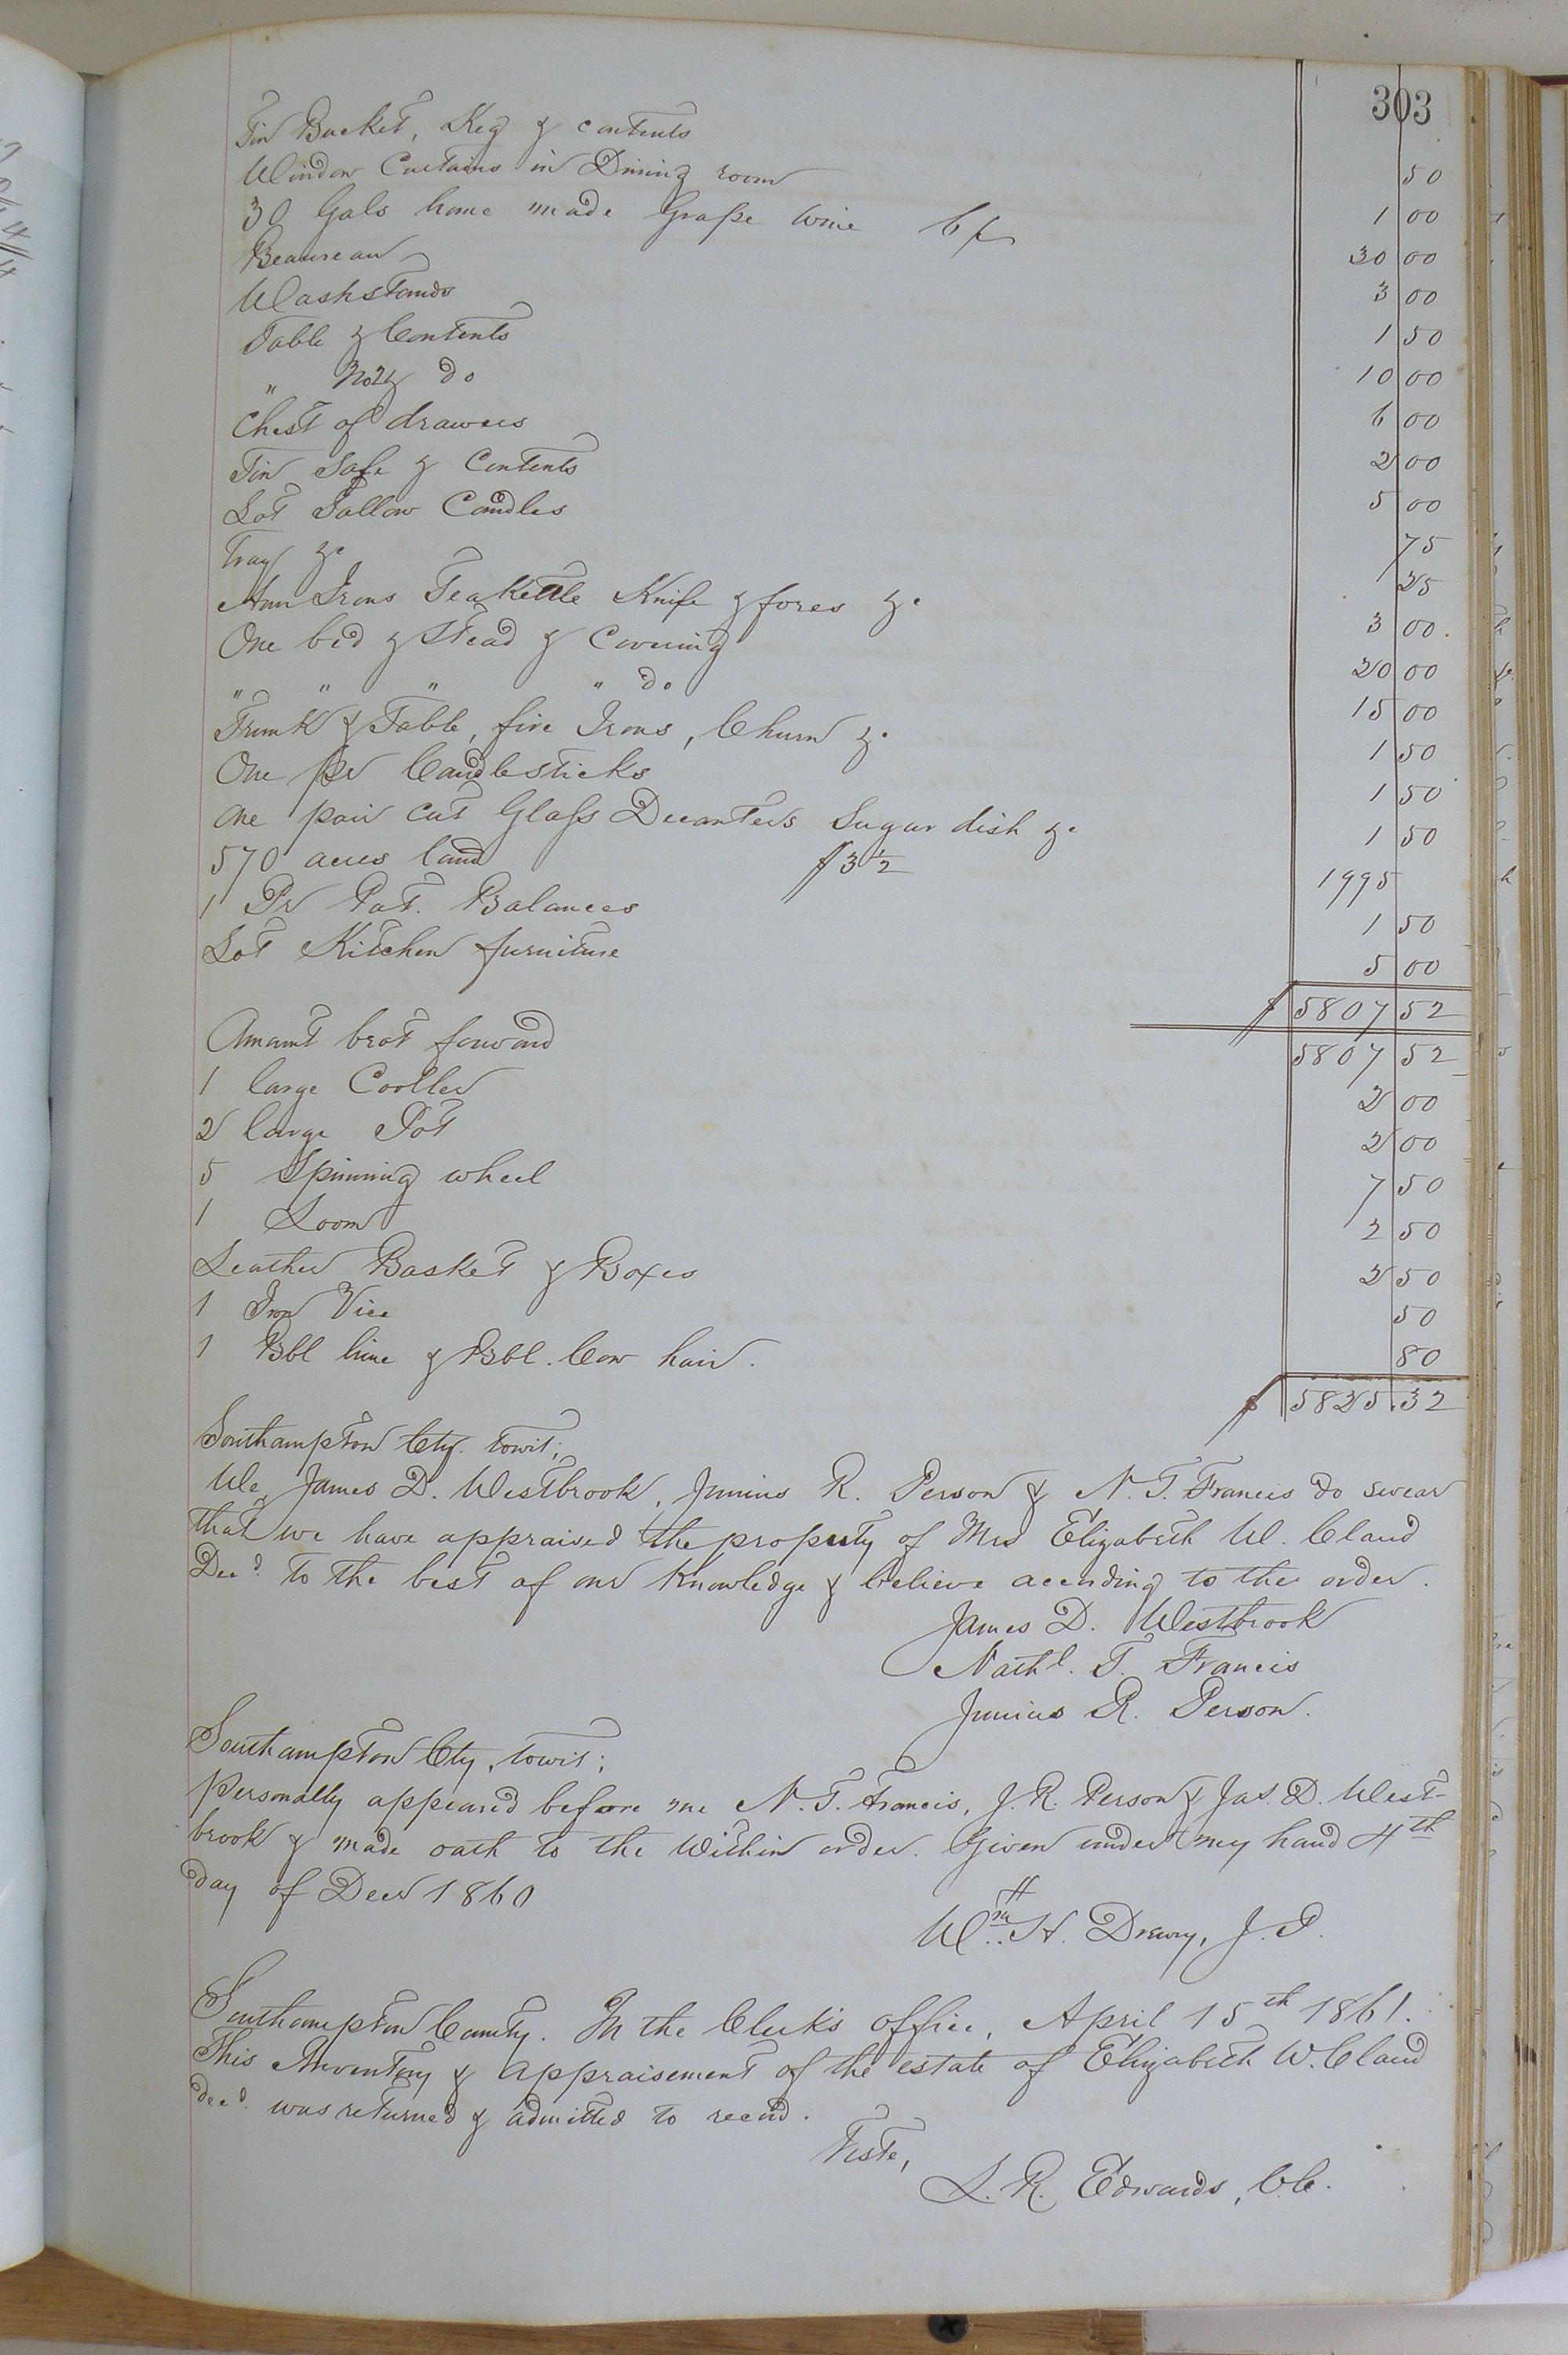 303
Tin Bucket, Keg & contents 50
Window Curtains in Dining room 1 00
30 Gals home made Grape Wine 6/ 30 00
Beaureau 3 00
Washstands 1 50
Table & Contents 10 00
" No 2 & do 6 00
Chest of drawers 2 00
Tin Safe & Contents 5 00
Lot Tallow Candles 75
Tray &c 25
Irons Teakettle Knife & &c 3 00
One bed & Stead & Covering 20 00
" " " " do 15 00
Trunk & Table, fire Irons, Churn &c 1 50
One pr Candlesticks 1 50
One pair cut Glass Decanters Sugar dish &c 1 50
570 acres land $3 1/2 1995
1 Pr Pat. Balances 1 50
Lot Kitchen furniture 5 00
$ 5807 52
Amount brot forward 5807 52
1 large 2 00
2 large Pot 2 00
5 Spinning wheel 7 50
1 Loom 2 50
Leather Basket & Boxes 2 50
1 Iron Vice 50
1 Bbl lime & Bbl. Cow hair. 80
$ 5825.32
Southampton Cty. towit;
We, James D. Westbrook, Junius R. Person & N. T. Francis do swear
that we have appraised the property of Mrs Elizabeth W. Claud
Decd. to the best of our Knowledge & believe according to the order.
James D. Westbrook
Nathl. T. Francis
Junius R. Person.
Southampton Cty, towit;
Personally appeared before me N. T. Francis, J. R. Person & Jas. D. West-
brook & made oath to the Within order. Given under my hand 4th
day of Decr 1860
Wm. H. Drewry, J. P.
Southampton County. In the Clerk's office, April 15th 1861.
This Inventory & appraisement of the estate of Elizabeth W. Claud
decd. was returned & admitted to record.
Teste,
L. R. Edwards, C.C.